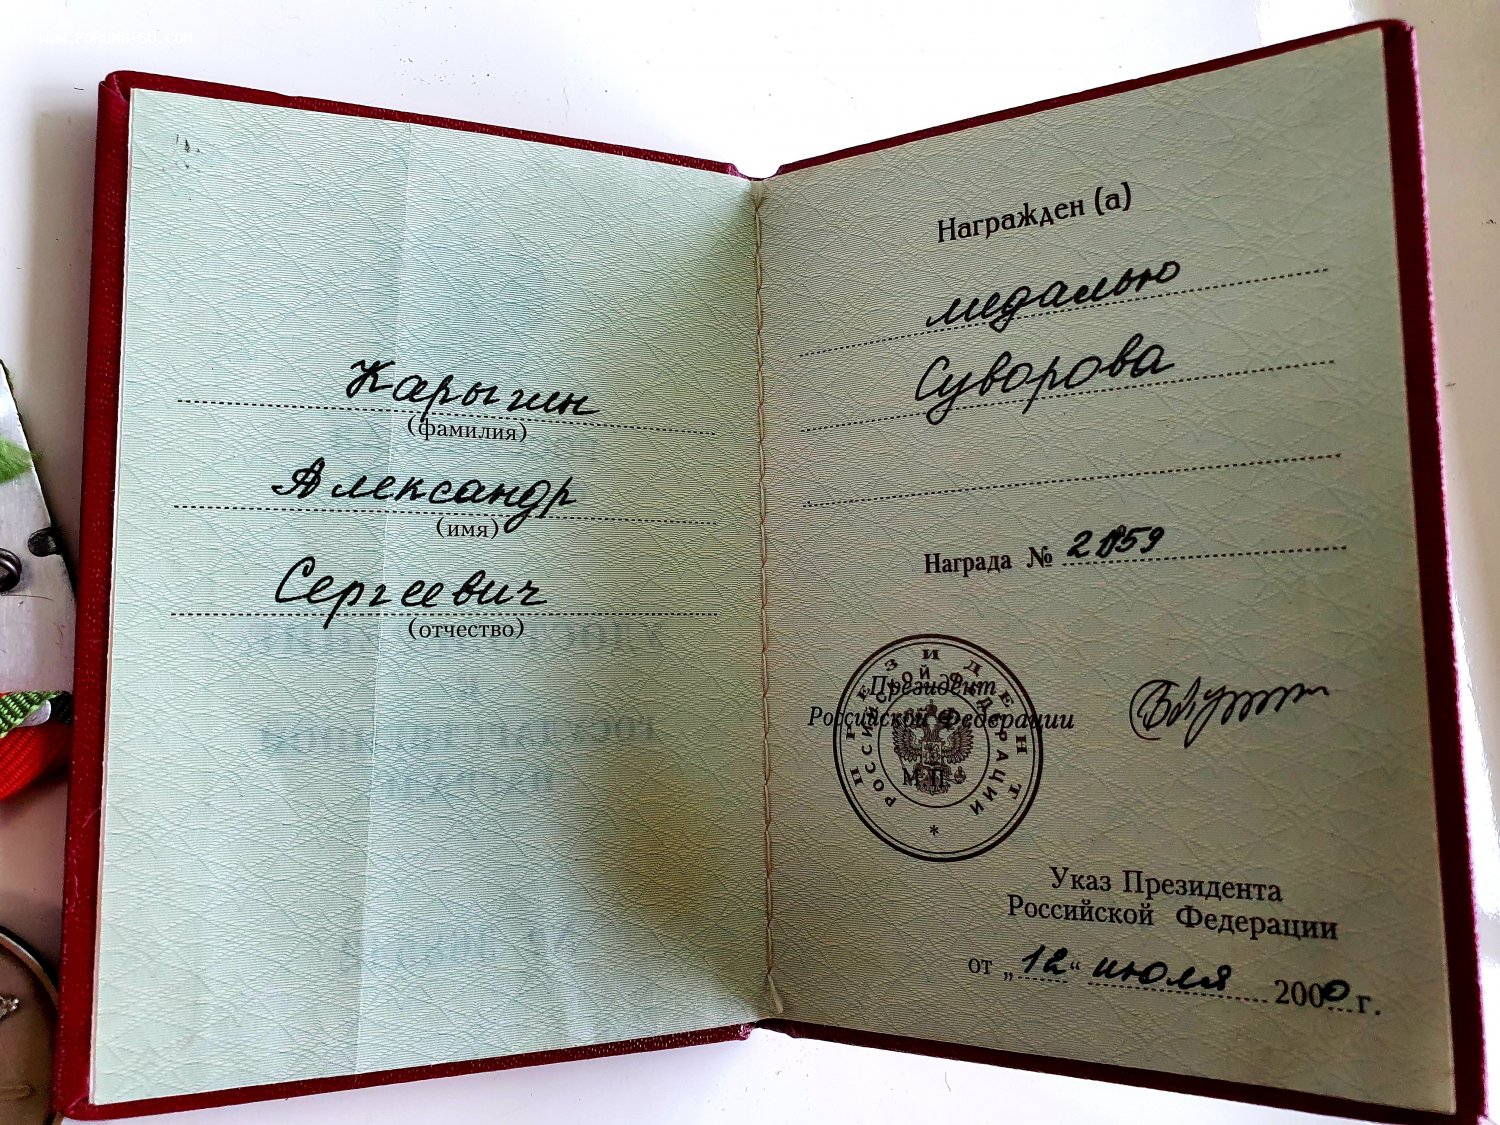 WWW.FORUMS-SU.COM
Карыгин
(фамилия)
Александр
(имя)
Сергеевич
(отчество)
Награжден (а)
медалью
Суворова
Награда №
Президент
Российской Федерации
М.П.
ПРЕЗИДЕНТ
РОССИЙСКОЙ ФЕДЕРАЦИИ
*
Указ Президента
Российской Федерации
от „12“ июля 2000 г.